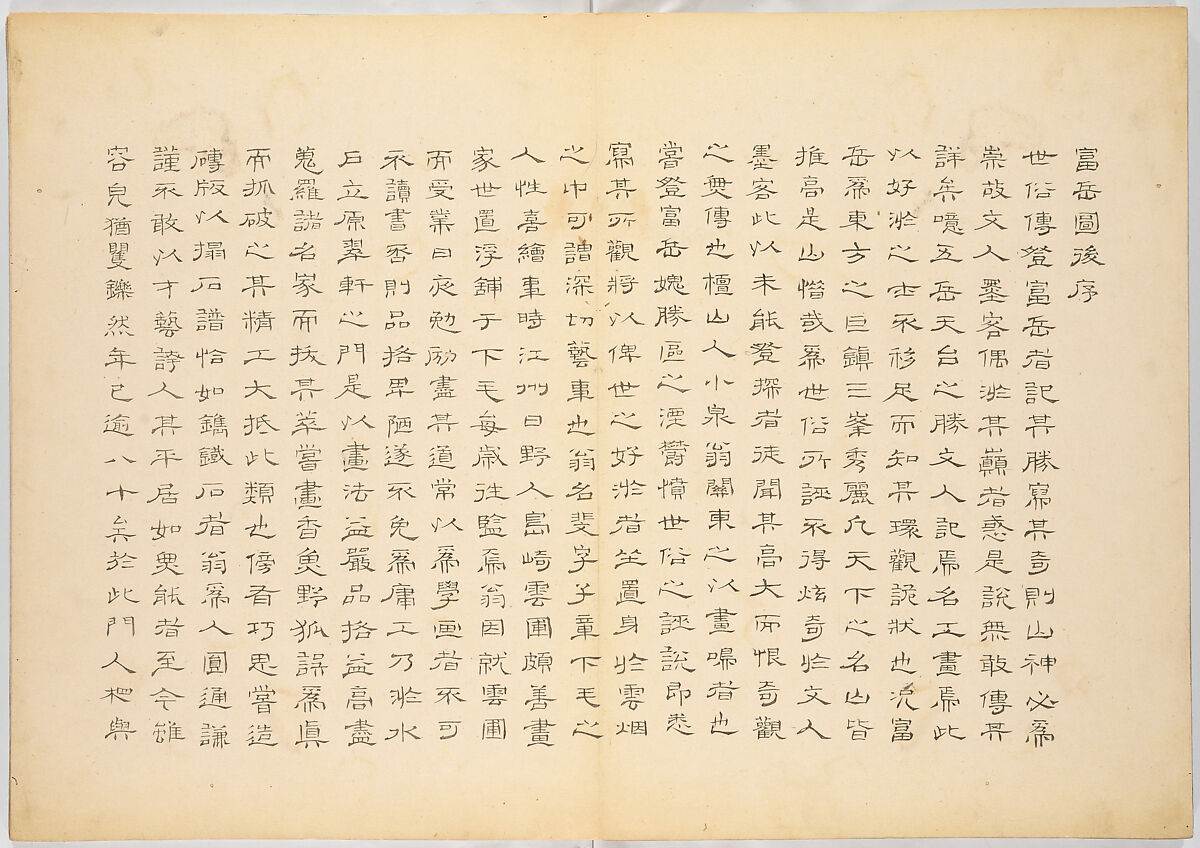 富岳圖後序
世俗傳登富岳者記其勝寫其奇則山神必爲
崇故文人墨客偶於其巓者惑是說無敢傳其
詳矣噫五岳天台之勝文人記焉名工畫焉此
以好於之士不移足而知其環觀詭狀也况富
岳爲東方之巨鎮三峯秀麗凢天下之名山皆
推高是山惜哉爲世俗所誣不得炫奇於文人
墨客此以未能登探者徒聞其高大而恨奇觀
之無傳也檀山人小泉翁關東之以畫鳴者也
嘗登富岳媿勝區之湮鬱憤世俗之誣說即悉
寫其所觀將以俾世之好於者坐置身於雲烟
之中可謂深切藝事也翁名斐字子章下毛之
人性喜繪事時江州日野人島崎雲圃頗善畫
家世置浮舖于下毛每歲往監焉翁因就雲圃
而受業日夜勉励盡其道常以爲學画者不可
不讀書否則品格卑陋遂不免爲庸工乃於水
戶立原翠軒之門是以畫法益嚴品格益高盡
蒐羅諸名家而拔其萃嘗畫香魚野狐誤爲眞
而抓破之其精工大抵此類也傍有巧思嘗造
磚版以搨石譜恰如鐫鐵石者翁爲人圓通謙
謹不敢以才藝誇人其平居如無能者至今雖
容皃猶矍鑠然年已逾八十矣於此門人柶與